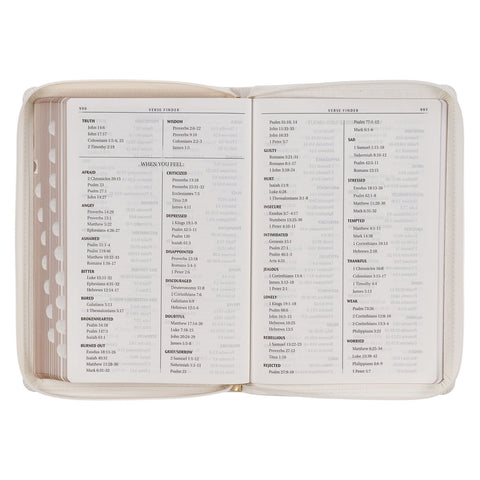 990
VERSE FINDER
TRUTH
John 14:6
John 17:17
Colossians 1:5-6, 23
2 Timothy 2:15
WISDOM
Proverbs 2:6-22
Proverbs 9:10
Colossians 2:2-3
James 1:5
WHEN YOU FEEL:
AFRAID
1 Chronicles 28:20
Psalm 23
Psalm 27:1
John 14:27
ANGRY
Proverbs 14:29
Proverbs 15:1
Matthew 5:22
Ephesians 4:26-27
ASSURED
Psalm 51:1-4
Psalm 119:41
Romans 1:16-17
BITTER
Luke 15:11-31
Ephesians 4:31-32
Hebrews 12:14-15
BORED
Galatians 6:9
1 Thessalonians 5:17
BROKENHEARTED
Psalm 34:18
Psalm 147:3
Isaiah 61:1
BURNED-OUT
Exodus 18:13-26
Isaiah 40:31
Mark 6:31-32
CRITICIZED
Proverbs 13:18
Proverbs 15:31-32
Ecclesiastes 7:5
Titus 2:8
James 4:11
DEPRESSED
1 Kings 19:1-9
Psalm 42:5-11
Psalm 126
Isaiah 61:3
DISAPPOINTED
Proverbs 23:18
Romans 5:4-5
1 Peter 2:6
DISCOURAGED
Deuteronomy 31:8
2 Corinthians 7:6
Galatians 6:9
Hebrews 12:1-4
DOUBTFUL
Matthew 17:14-20
Luke 7:18-23
John 20:24-29
James 1:5-8
GRIEF/SORROW
2 Samuel 12:22-23
Nehemiah 1:3-11
Psalm 23
VERSE FINDER
991
Psalm 51:10, 14
John 11:33-35
John 16:33
1 Peter 5:7
GUILTY
Romans 3:21-31
Romans 8:1-4
1 John 3:18-24
HURT
Isaiah 11:9
Luke 6:28
1 Thessalonians 3:8
INSECURE
Exodus 3:7-4:17
Numbers 13:30
Philippians 4:13
1 Peter 5:10-11
INTIMIDATED
Genesis 15:1
Psalm 27:1
Psalm 46:1-3
Acts 4:31
JEALOUS
1 Corinthians 13:4
James 3:14-16
1 Peter 2:1
LONELY
1 Kings 19:1-18
Psalm 68:6
John 14:15-31
Hebrews 10:25
Hebrews 13:5
REBELLIOUS
1 Samuel 15:22-23
Proverbs 27:12
James 1:13-15
REJECTED
Psalm 27:9-10
Mark 6:1-6
SAD
1 Samuel 1:15-18
Nehemiah 8:10-12
Psalm 42:5
STRESSED
Exodus 18:13-26
Isaiah 40:31
Mark 6:31-32
TEMPTED
Matthew 4:1-11
Mark 14:38
1 Corinthians 10:13
Hebrews 2:18
THANKFUL
1 Chronicles 16:8
Colossians 3:15
WEAK
Psalm 73:26
1 Corinthians 12:9-10
Hebrews 12:1-3
WORRIED
Matthew 6:25-34
Luke 10:38-42
Philippians 4:6-9
1 Peter 5:7